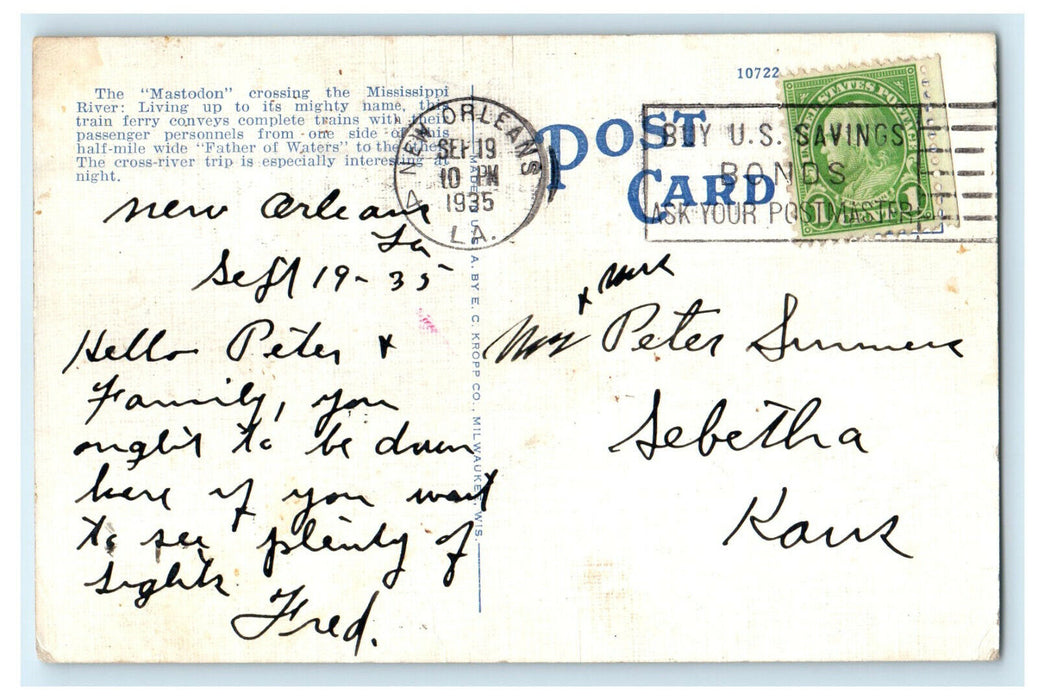 The "Mastodon" crossing the Mississippi
River: Living up to its mighty name, this
train ferry conveys complete trains with their
passenger personnels from one side of this
half-mile wide "Father of Waters" to the other.
The cross-river trip is especially interesting at
night.
New Orleans
La
Sept 19-35
Hello Peter +
Family, you
ought to be down
here if you want
to see plenty of
sights
Fred.
MADE IN U. S. A. BY E. C. KROPP CO., MILWAUKEE, WIS.
NEW ORLEANS
SEP 19
10 PM
1935
LA.
10722
POST
CARD
BUY U.S. SAVINGS
BONDS
ASK YOUR POSTMASTER
UNITED STATES POSTAGE
1 1
Mr Peter Summers
Sebetha
Kans